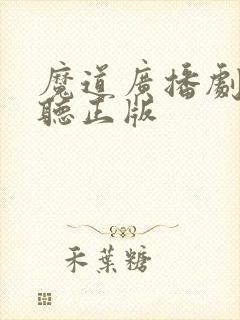 魔道廣播劇
聽正版
禾葉糖